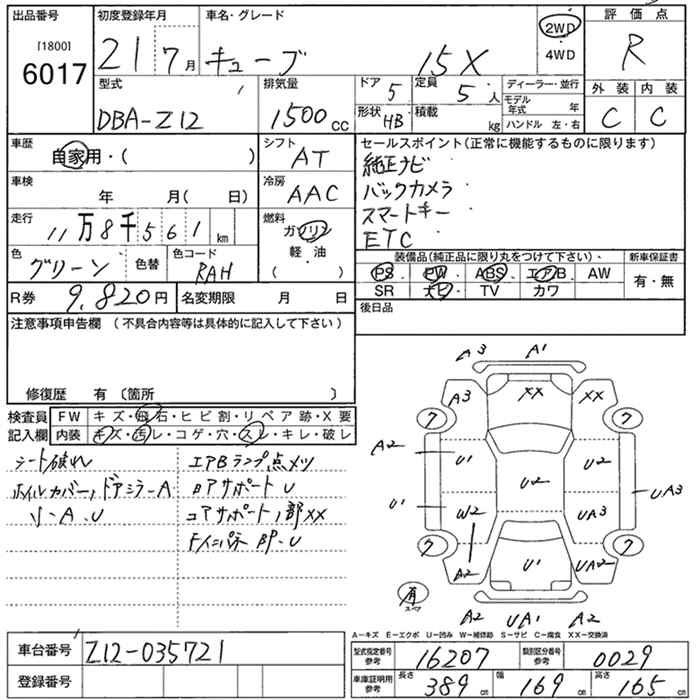 出品番号 初度登録年月 車名・グレード 評価点
[1800]
6017 21 7月 キューブ 15X 2WD 4WD R
型式 排気量 ドア 5 定員 5人 ディーラー・並行 外装 内装
DBA-Z12 1500cc 形状 HB 積載 kg モデル年式 年 C C
ハンドル 左・右
車歴 自家用・( ) シフト AT セールスポイント(正常に機能するものに限ります)
純正ナビ
車検 年 月( 日) 冷房 AAC バックカメラ
スマートキー
走行 11万8千561km 燃料 ガソリン 軽油 ( ) ETC
色 グリーン 色替 色コード RAH 装備品(純正品に限り丸をつけて下さい)、 新車保証書
PS・PW・ABS・エアB・AW 有・無
R券 9,820円 名変期限 月 日 SR ナビ・TV カワ
注意事項申告欄(不具合内容等は具体的に記入して下さい) 後日品
修復歴 有〔箇所 〕
検査員記入欄 FW キズ・飛石・ヒビ割・リペア跡・X要
内装 キズ・汚レ・コゲ・穴・スレ・キレ・破レ
シート破れ エアBランプ点メツ
ホイルカバー、ドアミラーA
小-A.U コアサポート、部XX
A3 A1
A3 XX XX
ワ ワ
A2 U1 U2
U2
U1 W2 UA3 UA3
ワ ワ
A2 U1 UA2
有 スペア A2 UA1 A2
A-キズ E-エクボ U-凹み W-補修跡 S-サビ C-腐食 XX-交換済
車台番号 Z12-035721 型式指定番号 参考 16207 類別区分番号 参考 0029
登録番号 車庫証明用 参考 長さ 389cm 幅 169cm 高さ 165cm